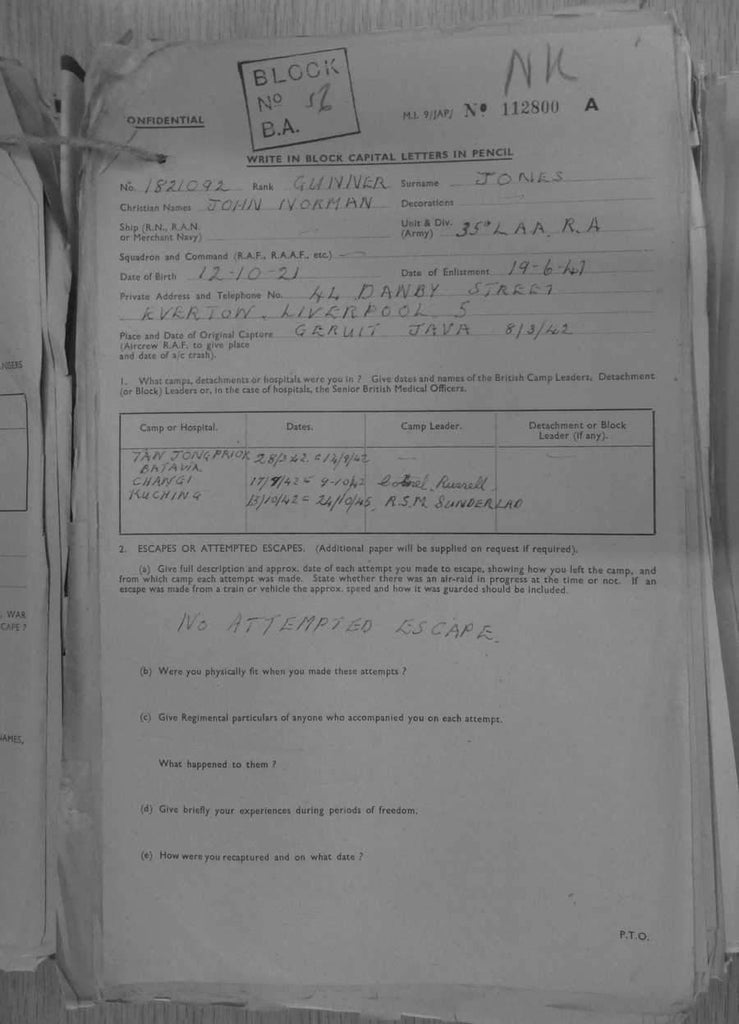 BLOCK
Nº 52
B.A.
NK
ONFIDENTIAL
M.I. 9/JAP/ Nº 112800 A
WRITE IN BLOCK CAPITAL LETTERS IN PENCIL
No. 1821092 Rank GUNNER Surname JONES
Christian Names JOHN NORMAN Decorations
Ship (R.N., R.A.N. or Merchant Navy) Unit & Div. (Army) 35th L A A. R.A
Squadron and Command (R.A.F., R.A.A.F., etc.)
Date of Birth 12-10-21 Date of Enlistment 19-6-41
Private Address and Telephone No. 44 DANBY STREET
EVERTON. LIVERPOOL 5
Place and Date of Original Capture GERUIT JAVA 8/3/42
(Aircrew R.A.F. to give place
and date of a/c crash).
1. What camps, detachments or hospitals were you in ? Give dates and names of the British Camp Leaders, Detachment
(or Block) Leaders or, in the case of hospitals, the Senior British Medical Officers.
Camp or Hospital. Dates. Camp Leader. Detachment or Block Leader (if any).
TAN JONG PRIOK 28/3/42 = 14/9/42
BATAVIA
CHANGI 17/9/42 = 9-10/42 Colonel Russell
KUCHING 13/10/42 = 24/10/45 R.S.M SUNDERLAD
2. ESCAPES OR ATTEMPTED ESCAPES. (Additional paper will be supplied on request if required).
(a) Give full description and approx. date of each attempt you made to escape, showing how you left the camp, and
from which camp each attempt was made. State whether there was an air-raid in progress at the time or not. If an
escape was made from a train or vehicle the approx. speed and how it was guarded should be included.
NO ATTEMPTED ESCAPE.
(b) Were you physically fit when you made these attempts ?
(c) Give Regimental particulars of anyone who accompanied you on each attempt.
What happened to them ?
(d) Give briefly your experiences during periods of freedom.
(e) How were you recaptured and on what date ?
P.T.O.
WAR
CAPE ?
AMES,